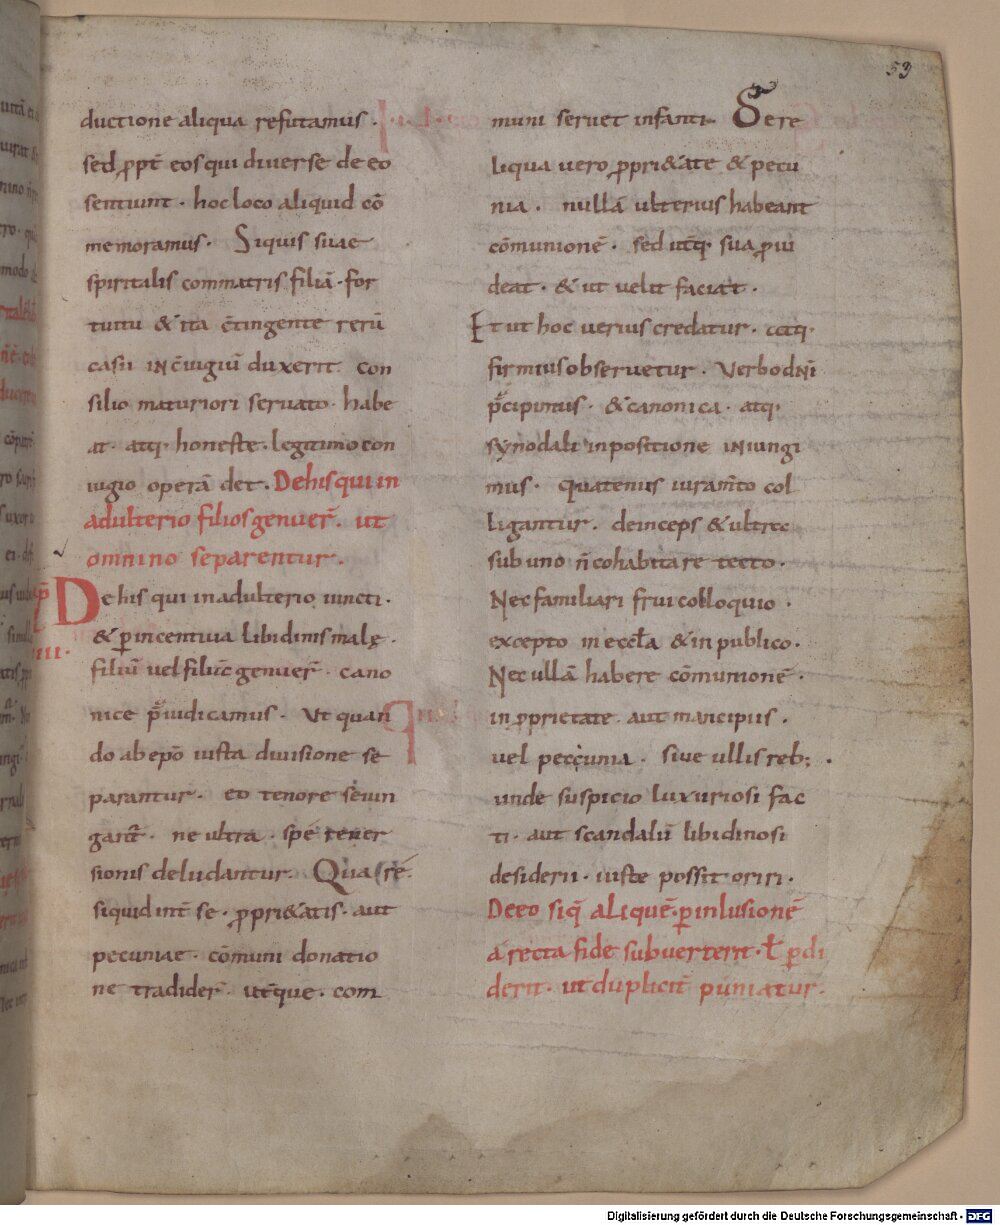 59
ductione aliqua refutamus.
sed ꝓpt̄ eos qui diverse de eo
sentiunt · hoc loco aliquid cō
memoramus · Si quis suae
spiritalis commatris filiā · for
tuitu & ita c̄tingente rerū
casu in c̄iugiū duxerit con
silio maturiori servato · habe
at · atq· honeste · legitimo con
iugio operā det · De his qui in
adulterio filios genuer̄ · ut
omnino separentur.
De his qui in adulterio iuncti ·
& ꝑ incentiva libidinis malę ·
filiū vel filias genuer̄ · cano
nice p̄iudicamus · Ut quan
do ab epō iusta divisione se
parantur · eo tenore seiun
gant̄ · ne ultra · spē rever
sionis deludantur. Quas rē
si quid int̄ se · ꝓpri&atis · aut
pecuniae · cōmuni donatio
ne trader̄ · ut̄que · com
muni servet infanti · De re
liqua vero ꝓpri&ate & pecu
nia · nullā ulterius habeant
cōmunionē · sed ut̄q· sua ꝓvi
deat · & ut velit faciat ·
Et ut hoc verius credatur · atq·
firmius observetur · Verbo dn̄i
p̄cipimus · & canonica · atq·
synodali inpositione iniungi
mus · quatenus iuram̄to col
ligantur · deinceps & ultra
sub uno n̄ cohabitare tecto ·
Nec familiari frui colloquio ·
excepto in eccl̄a & in publico ·
Nec ullā habere cōmunionē ·
in ꝓprietate aut mancipiis ·
vel peccunia · sive ullis reb; ·
unde suspicio luxuriosi fac
ti · aut scandalū libidinosi
desiderii · iuste possit oriri ·
De eo siq̄ aliquē · ꝑ inlusionē
a recta fide subverterit · ł ꝑdi
derit · ut duplicit̄ puniatur ·